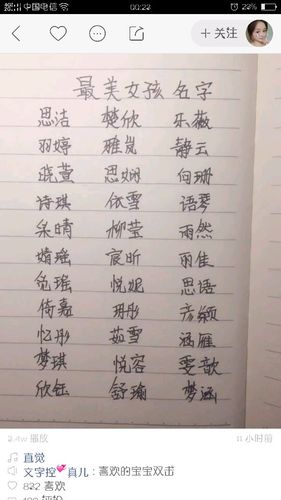 中国电信 00:22 22%
+ 关注
最美女孩名字
思洁 楚欣 乐薇
羽婷 雅岚 静云
晓萱 思娴 向珊
诗琪 依雪 语琴
采晴 柳莹 雨然
婧瑶 宸昕 雨佳
悦妮 思语
倚嘉 玥彤 彦颖
忆彤 茹雪 涵雁
梦琪 悦容 雯歆
欣钰 舒瑜 梦涵
2.4w 播放 11小时前
直觉
文字控💕真儿：喜欢的宝宝双击
822 喜欢